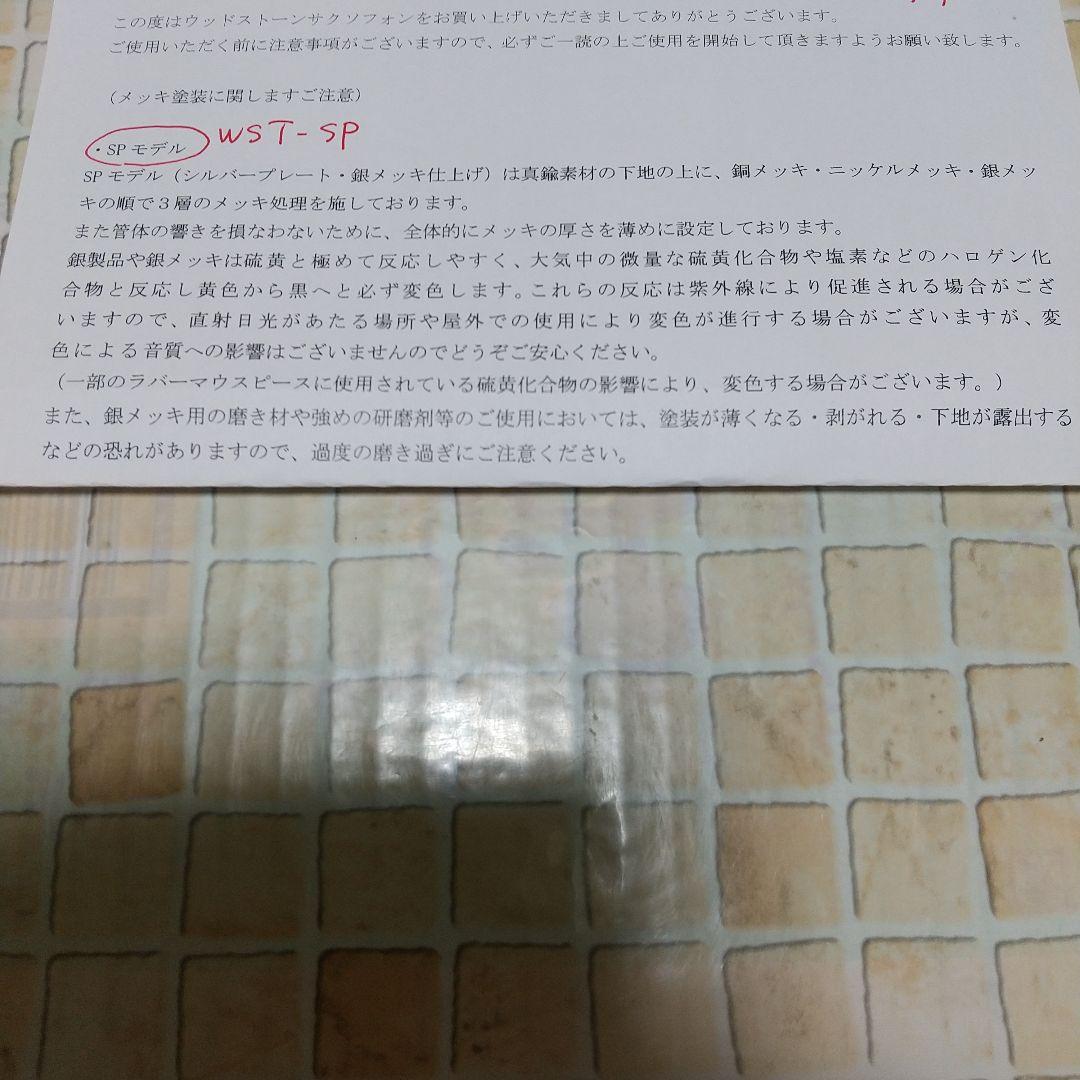 この度はウッドストーンサクソフォンをお買い上げいただきましてありがとうございます。
ご使用いただく前に注意事項がございますので、必ずご一読の上ご使用を開始して頂きますようお願い致します。
（メッキ塗装に関しますご注意）
・SP モデル WST-SP
SP モデル（シルバープレート・銀メッキ仕上げ）は真鍮素材の下地の上に、銅メッキ・ニッケルメッキ・銀メッ
キの順で３層のメッキ処理を施しております。
また管体の響きを損なわないために、全体的にメッキの厚さを薄めに設定しております。
銀製品や銀メッキは硫黄と極めて反応しやすく、大気中の微量な硫黄化合物や塩素などのハロゲン化
合物と反応し黄色から黒へと必ず変色します。これらの反応は紫外線により促進される場合がござ
いますので、直射日光があたる場所や屋外での使用により変色が進行する場合がございますが、変
色による音質への影響はございませんのでどうぞご安心ください。
（一部のラバーマウスピースに使用されている硫黄化合物の影響により、変色する場合がございます。）
また、銀メッキ用の磨き材や強めの研磨剤等のご使用においては、塗装が薄くなる・剥がれる・下地が露出する
などの恐れがありますので、過度の磨き過ぎにご注意ください。